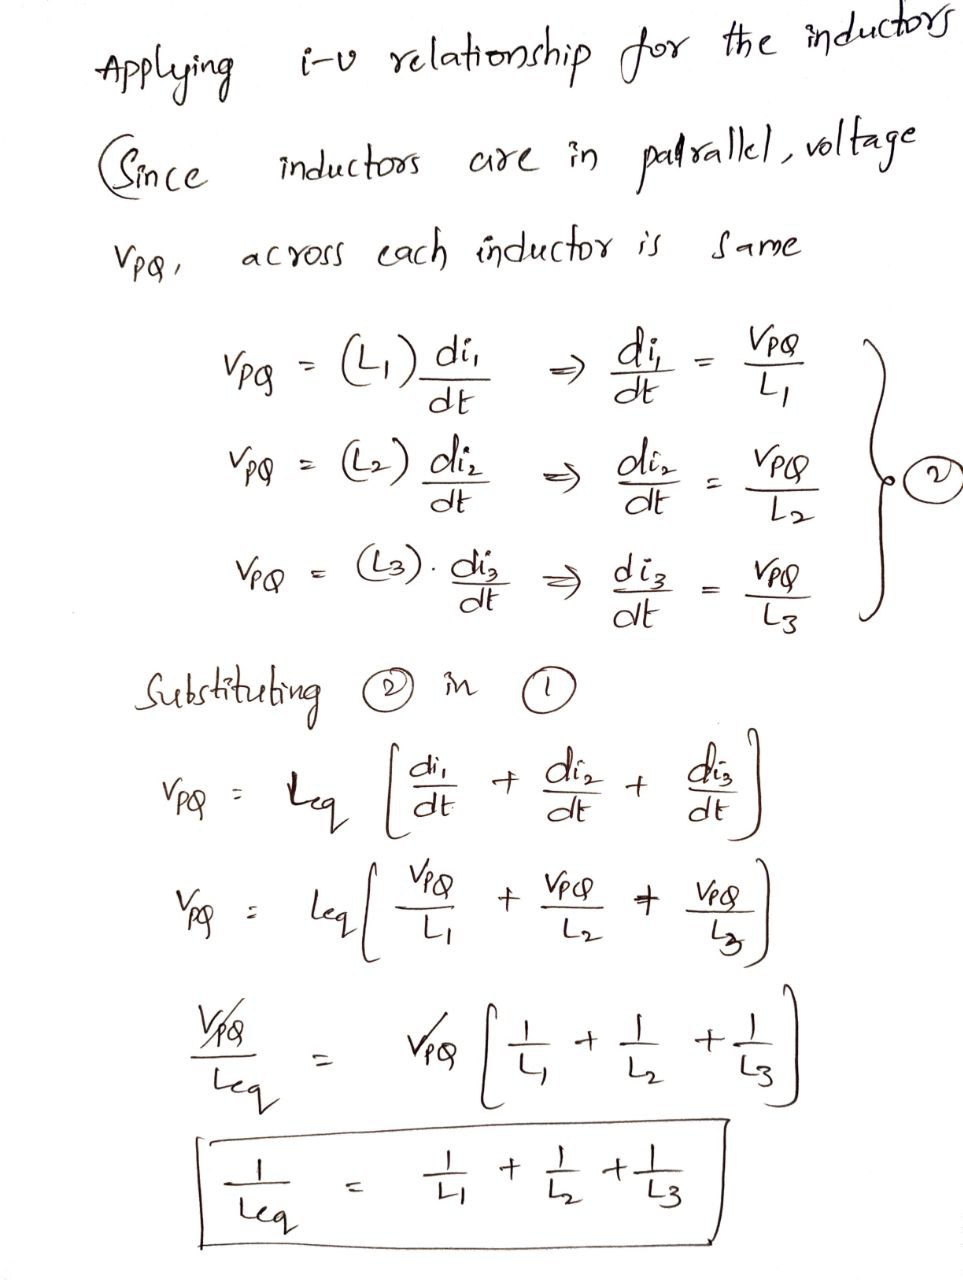 Applying i-v relationship for the inductors
(Since inductors are in parallel, voltage
VPQ, across each inductor is same
VPQ = (L1) di1/dt ⇒ di1/dt = VPQ/L1
VPQ = (L2) di2/dt ⇒ di2/dt = VPQ/L2 } ②
VPQ = (L3) · di3/dt ⇒ di3/dt = VPQ/L3
Substituting ② in ①
VPQ = Leq [di1/dt + di2/dt + di3/dt]
VPQ = Leq [VPQ/L1 + VPQ/L2 + VPQ/L3]
VPQ/Leq = VPQ [1/L1 + 1/L2 + 1/L3]
1/Leq = 1/L1 + 1/L2 + 1/L3